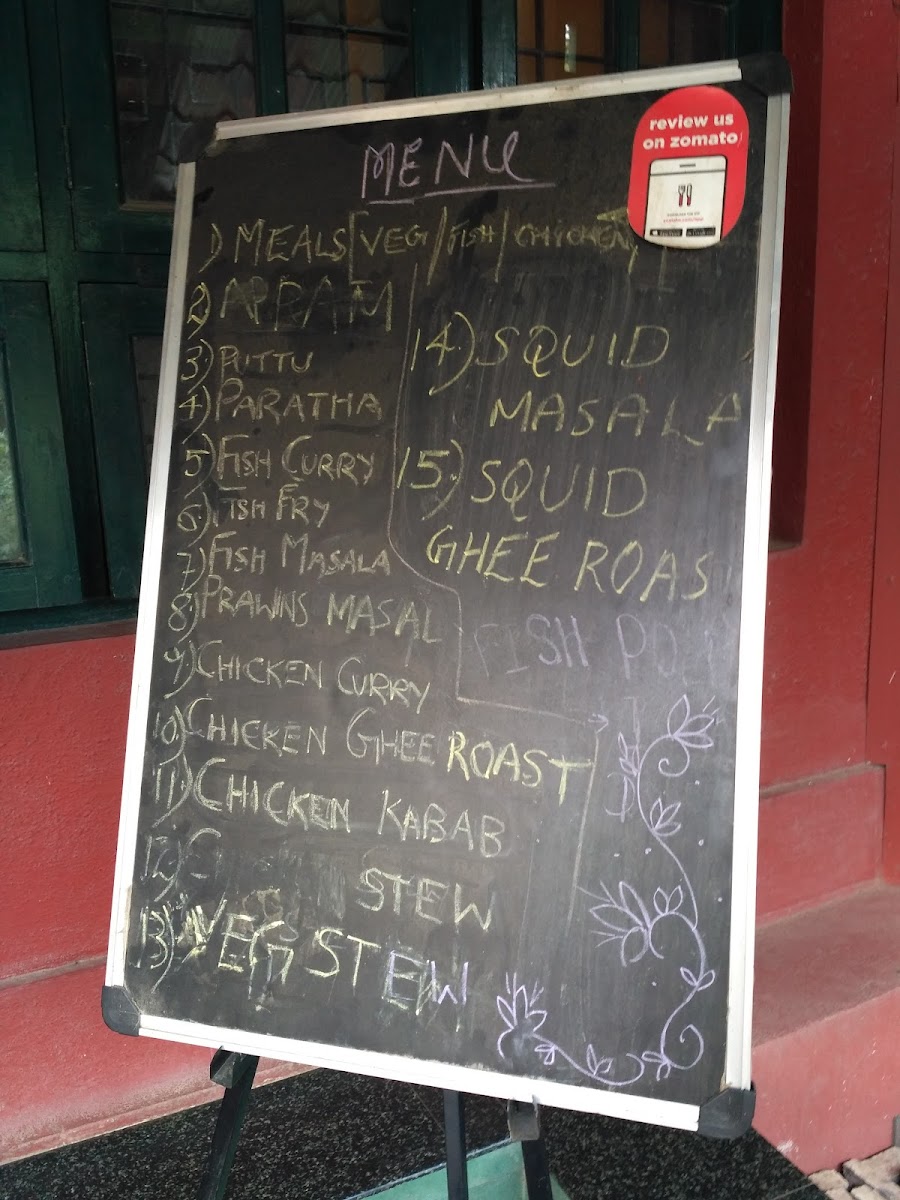 review us
on zomato
MENU
1) MEALS [VEG/FISH/CHICKEN]
2) APPAM
3) PUTTU
4) PARATHA
5) FISH CURRY
6) FISH FRY
7) FISH MASALA
8) PRAWNS MASAL
9) CHICKEN CURRY
10) CHICKEN GHEE ROAST
11) CHICKEN KABAB
12) STEW
13) VEG STEW
14) SQUID
MASALA
15) SQUID
GHEE ROAS
FISH